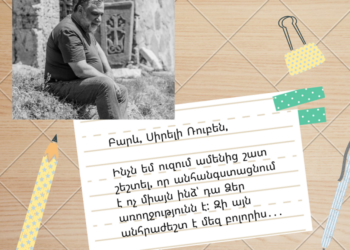 Բարև, Սիրելի Ռուբեն,
Ինչն եմ ուզում ամենից շատ
շեշտել, որ անհանգստացնում
է ոչ միայն ինձ՝ դա Ձեր
առողջությունն է: Զի այն
անհրաժեշտ է մեզ բոլորիս...